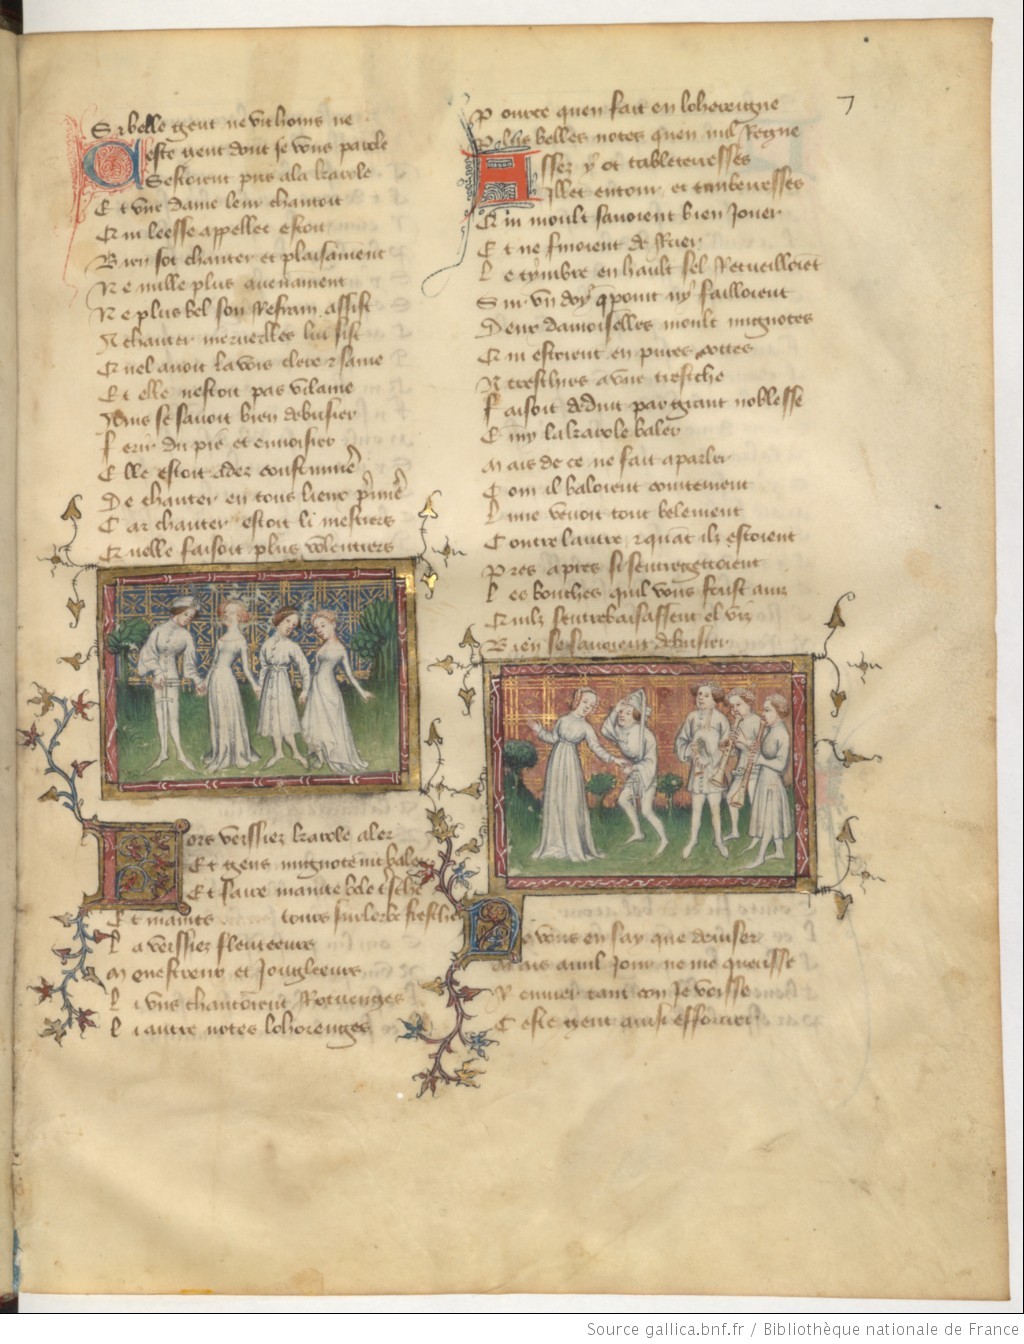 Si belle gent ne vit homs ne
Ceste gent dont je vous parole
Sestoient pris a la karole
Et une dame leur chantoit
Qui leesse appellee estoit
Bien sot chanter et plaisament
Ne mille plus avenament
Ne plus bel son Reffrain assist
A chanter merveilles lui sist
Quel avoit la vois clere z saine
Et elle nestoit pas vilaine
Ains se savoit bien debrisier
Ferir du pie et envoisier
Elle estoit adez coustumiere
De chanter en tous lieux premiere
Car chanter estoit li mestiers
Quelle faisoit plus voulentiers
Lors veissiez karole aler
Et gens mignotement baler
Et faire mainte bele tresche
Et maints tours sur lerbe freshe
La veissiez fleuteurs
Menestreux et Jougleeurs
Li uns chantoient Rotuenges
Li autre notes lohorenges
7
Pource quen fait en lohereigne
Plus belles notes quen nul Regne
Assez y ot tableteresses
Illec entour et timberesses
Qui moult savoient bien Jouer
Et ne finoient de Ruer
Le tymbre en hault sel Recueilloient
Sur un doy quonques point ny failloient
Deux damoiselles moult mignotes
Qui estoient en pures cottes
Et tresthies a une tresche
Faisoit deduit par grant noblesse
Enmy la karole baler
Mais de ce ne fait a parler
Com il baloient cointement
Lune venoit tout belement
Contre lautre z quant ilz estoient
Pres apres si sentregettoient
Les bouches quil vous fust avis
Quilz sentrebaisassent el vis
Bien se savoient debrisier
Ne vous en say que deviser
Mais a nul Jour ne me queisse
Remuer tant con Je veisse
Ceste gent ainsi efforcier
Source gallica.bnf.fr / Bibliothèque nationale de France